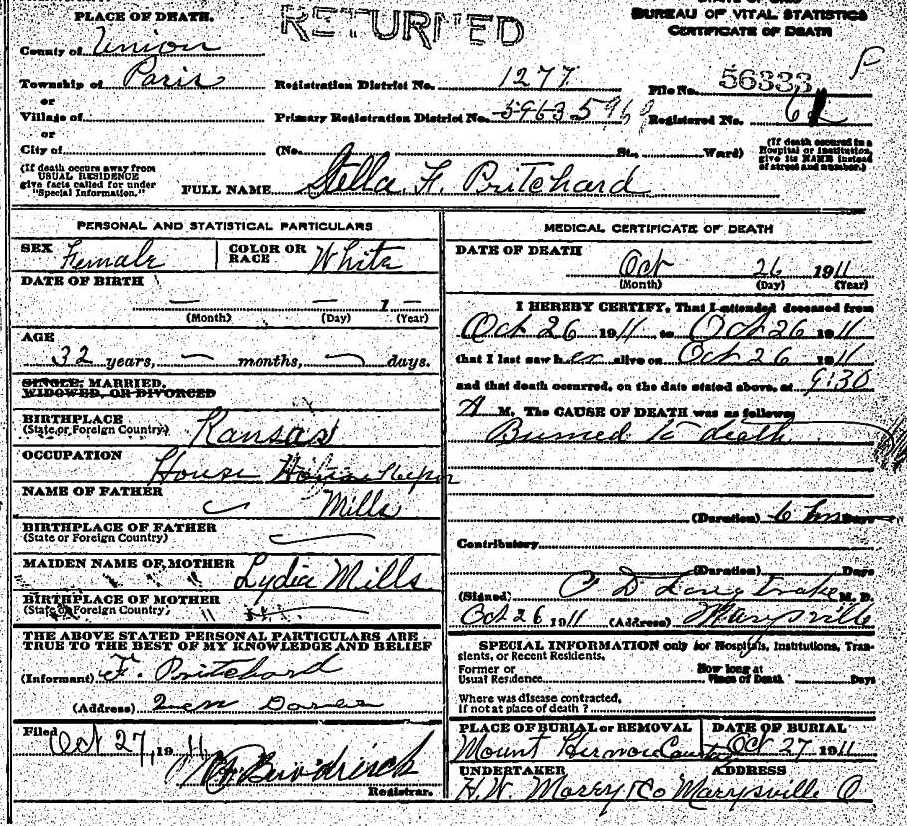 PLACE OF DEATH.
RETURNED
BUREAU OF VITAL STATISTICS
CERTIFICATE OF DEATH
County of Union
Township of Paris
Registration District No. 1277
File No. 56333
or
Village of
Primary Registration District No. 5963 5969
Registered No.
or
City of
(No. St., Ward)
(If death occurred in a Hospital or Institution, give its NAME instead of street and number.)
(If death occurs away from USUAL RESIDENCE give facts called for under "Special Information.")
FULL NAME Stella F. Pritchard
PERSONAL AND STATISTICAL PARTICULARS
SEX Female
COLOR OR RACE White
DATE OF BIRTH
— — 1 —
(Month) (Day) (Year)
AGE
32 years, — months, — days.
SINGLE, MARRIED,
WIDOWED, OR DIVORCED
BIRTHPLACE
(State or Foreign Country) Kansas
OCCUPATION
House House Keeper
NAME OF FATHER
— Mills
BIRTHPLACE OF FATHER
(State or Foreign Country)
MAIDEN NAME OF MOTHER Lydia Mills
BIRTHPLACE OF MOTHER
(State or Foreign Country)
THE ABOVE STATED PERSONAL PARTICULARS ARE
TRUE TO THE BEST OF MY KNOWLEDGE AND BELIEF
(Informant) F. Pritchard
(Address)
Filed Oct 27, 1911
Registrar.
MEDICAL CERTIFICATE OF DEATH
DATE OF DEATH
Oct 26 1911
(Month) (Day) (Year)
I HEREBY CERTIFY, That I attended deceased from
Oct 26 1911 to Oct 26 1911
that I last saw her alive on Oct 26 1911
and that death occurred, on the date stated above, at 9:30
A M. The CAUSE OF DEATH was as follows:
Burned to death
(Duration) 6 hrs Days
Contributory
(Duration) Days
(Signed) M. D.
Oct 26 1911 (Address) Marysville
SPECIAL INFORMATION only for Hospitals, Institutions, Transients, or Recent Residents.
Former or
Usual Residence
How long at
Place of Death Days
Where was disease contracted,
If not at place of death?
PLACE OF BURIAL or REMOVAL
DATE OF BURIAL
Mount Hermon Oct 27 1911
UNDERTAKER
ADDRESS
H.W. Morey & Co Marysville O